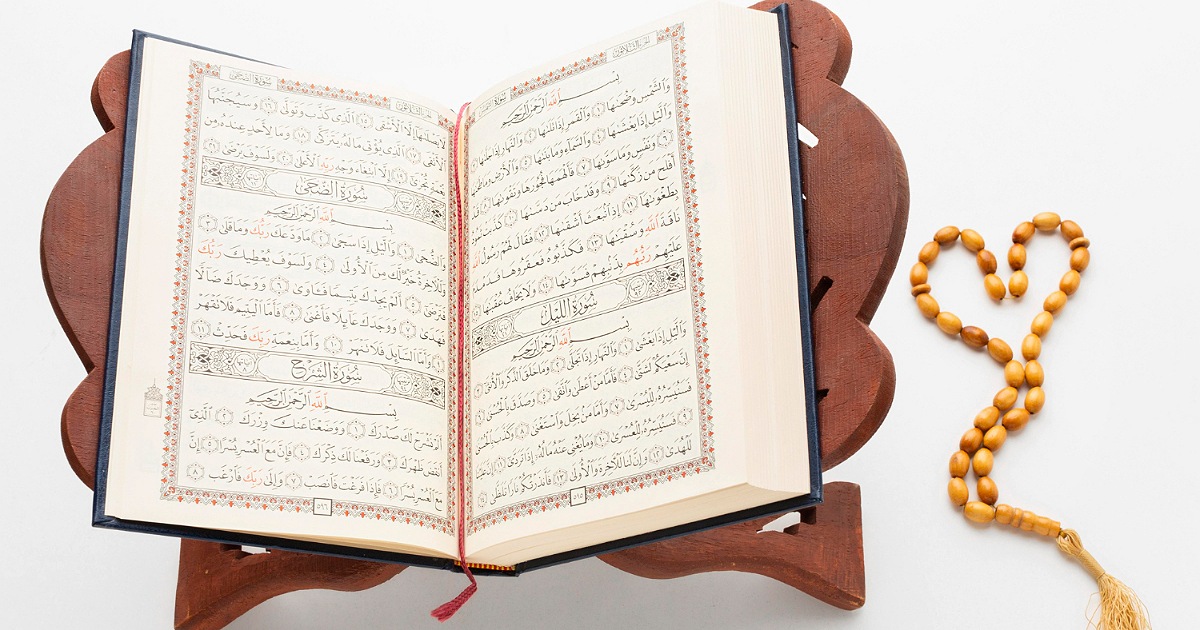 الجزء الثلاثون
بِسْمِ اللَّهِ الرَّحْمَٰنِ الرَّحِيمِ
وَالشَّمْسِ وَضُحَىٰهَا ١ وَالْقَمَرِ إِذَا تَلَىٰهَا ٢ وَالنَّهَارِ إِذَا جَلَّىٰهَا ٣
وَاللَّيْلِ إِذَا يَغْشَىٰهَا ٤ وَالسَّمَاءِ وَمَا بَنَىٰهَا ٥ وَالْأَرْضِ وَمَا طَحَىٰهَا
٦ وَنَفْسٍ وَمَا سَوَّىٰهَا ٧ فَأَلْهَمَهَا فُجُورَهَا وَتَقْوَىٰهَا ٨ قَدْ
أَفْلَحَ مَن زَكَّىٰهَا ٩ وَقَدْ خَابَ مَن دَسَّىٰهَا ١٠ كَذَّبَتْ ثَمُودُ
بِطَغْوَىٰهَا ١١ إِذِ انبَعَثَ أَشْقَىٰهَا ١٢ فَقَالَ لَهُمْ رَسُولُ اللَّهِ
نَاقَةَ اللَّهِ وَسُقْيَٰهَا ١٣ فَكَذَّبُوهُ فَعَقَرُوهَا فَدَمْدَمَ
عَلَيْهِمْ رَبُّهُم بِذَنبِهِمْ فَسَوَّىٰهَا ١٤ وَلَا يَخَافُ عُقْبَٰهَا ١٥
سُورَةُ اللَّيْلِ
بِسْمِ اللَّهِ الرَّحْمَٰنِ الرَّحِيمِ
وَاللَّيْلِ إِذَا يَغْشَىٰ ١ وَالنَّهَارِ إِذَا تَجَلَّىٰ ٢ وَمَا خَلَقَ الذَّكَرَ وَالْأُنثَىٰ ٣
إِنَّ سَعْيَكُمْ لَشَتَّىٰ ٤ فَأَمَّا مَنْ أَعْطَىٰ وَاتَّقَىٰ ٥ وَصَدَّقَ بِالْحُسْنَىٰ ٦
فَسَنُيَسِّرُهُ لِلْيُسْرَىٰ ٧ وَأَمَّا مَن بَخِلَ وَاسْتَغْنَىٰ ٨ وَكَذَّبَ بِالْحُسْنَىٰ
٩ فَسَنُيَسِّرُهُ لِلْعُسْرَىٰ ١٠ وَمَا يُغْنِي عَنْهُ مَالُهُ إِذَا تَرَدَّىٰ ١١ إِنَّ عَلَيْنَا
لَلْهُدَىٰ ١٢ وَإِنَّ لَنَا لَلْآخِرَةَ وَالْأُولَىٰ ١٣ فَأَنذَرْتُكُمْ نَارًا تَلَظَّىٰ ١٤
٥٩٥
الجزء الثلاثون سورة الضحى
لَا يَصْلَىٰهَا إِلَّا الْأَشْقَى ١٥ الَّذِي كَذَّبَ وَتَوَلَّىٰ ١٦ وَسَيُجَنَّبُهَا
الْأَتْقَى ١٧ الَّذِي يُؤْتِي مَالَهُ يَتَزَكَّىٰ ١٨ وَمَا لِأَحَدٍ عِندَهُ مِن
نِّعْمَةٍ تُجْزَىٰ ١٩ إِلَّا ابْتِغَاءَ وَجْهِ رَبِّهِ الْأَعْلَىٰ ٢٠ وَلَسَوْفَ يَرْضَىٰ ٢١
سُورَةُ الضُّحَىٰ
بِسْمِ اللَّهِ الرَّحْمَٰنِ الرَّحِيمِ
وَالضُّحَىٰ ١ وَاللَّيْلِ إِذَا سَجَىٰ ٢ مَا وَدَّعَكَ رَبُّكَ وَمَا قَلَىٰ ٣
وَلَلْآخِرَةُ خَيْرٌ لَّكَ مِنَ الْأُولَىٰ ٤ وَلَسَوْفَ يُعْطِيكَ رَبُّكَ
فَتَرْضَىٰ ٥ أَلَمْ يَجِدْكَ يَتِيمًا فَآوَىٰ ٦ وَوَجَدَكَ ضَالًّا
فَهَدَىٰ ٧ وَوَجَدَكَ عَائِلًا فَأَغْنَىٰ ٨ فَأَمَّا الْيَتِيمَ فَلَا تَقْهَرْ
٩ وَأَمَّا السَّائِلَ فَلَا تَنْهَرْ ١٠ وَأَمَّا بِنِعْمَةِ رَبِّكَ فَحَدِّثْ ١١
سُورَةُ الشَّرْحِ
بِسْمِ اللَّهِ الرَّحْمَٰنِ الرَّحِيمِ
أَلَمْ نَشْرَحْ لَكَ صَدْرَكَ ١ وَوَضَعْنَا عَنكَ وِزْرَكَ ٢ الَّذِي
أَنقَضَ ظَهْرَكَ ٣ وَرَفَعْنَا لَكَ ذِكْرَكَ ٤ فَإِنَّ مَعَ الْعُسْرِ يُسْرًا ٥ إِنَّ
مَعَ الْعُسْرِ يُسْرًا ٦ فَإِذَا فَرَغْتَ فَانصَبْ ٧ وَإِلَىٰ رَبِّكَ فَارْغَب ٨
٥٩٦